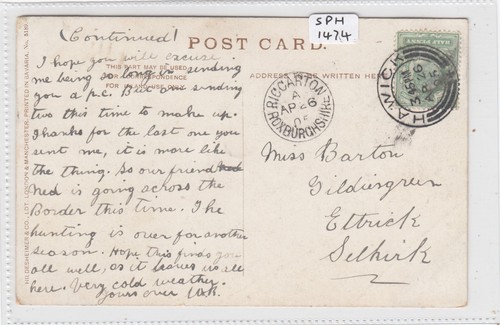 SPH
1474
(Continued)
POST CARD.
I hope you will excuse
me being so long in sending
you a p.c. But am sending
two this time to make up.
Thanks for the last one you
sent me, it is more like
the thing. So our friend
Ned is going across the
Border this time. The
hunting is over for another
season. Hope this finds you
all well, as it leaves us all
here. Very cold weather.
Yours ever
THIS PART MAY BE USED
FOR CORRESPONDENCE
ADDRESS TO BE WRITTEN HERE
HALF PENNY
HAWICK
AP 26
RICCARTON
A
AP 26
ROXBURGHSHIRE
Miss Barton
Gildiesgreen
Ettrick
Selkirk
HILDESHEIMER & CO. LTD. LONDON & MANCHESTER. PRINTED IN BAVARIA. No.